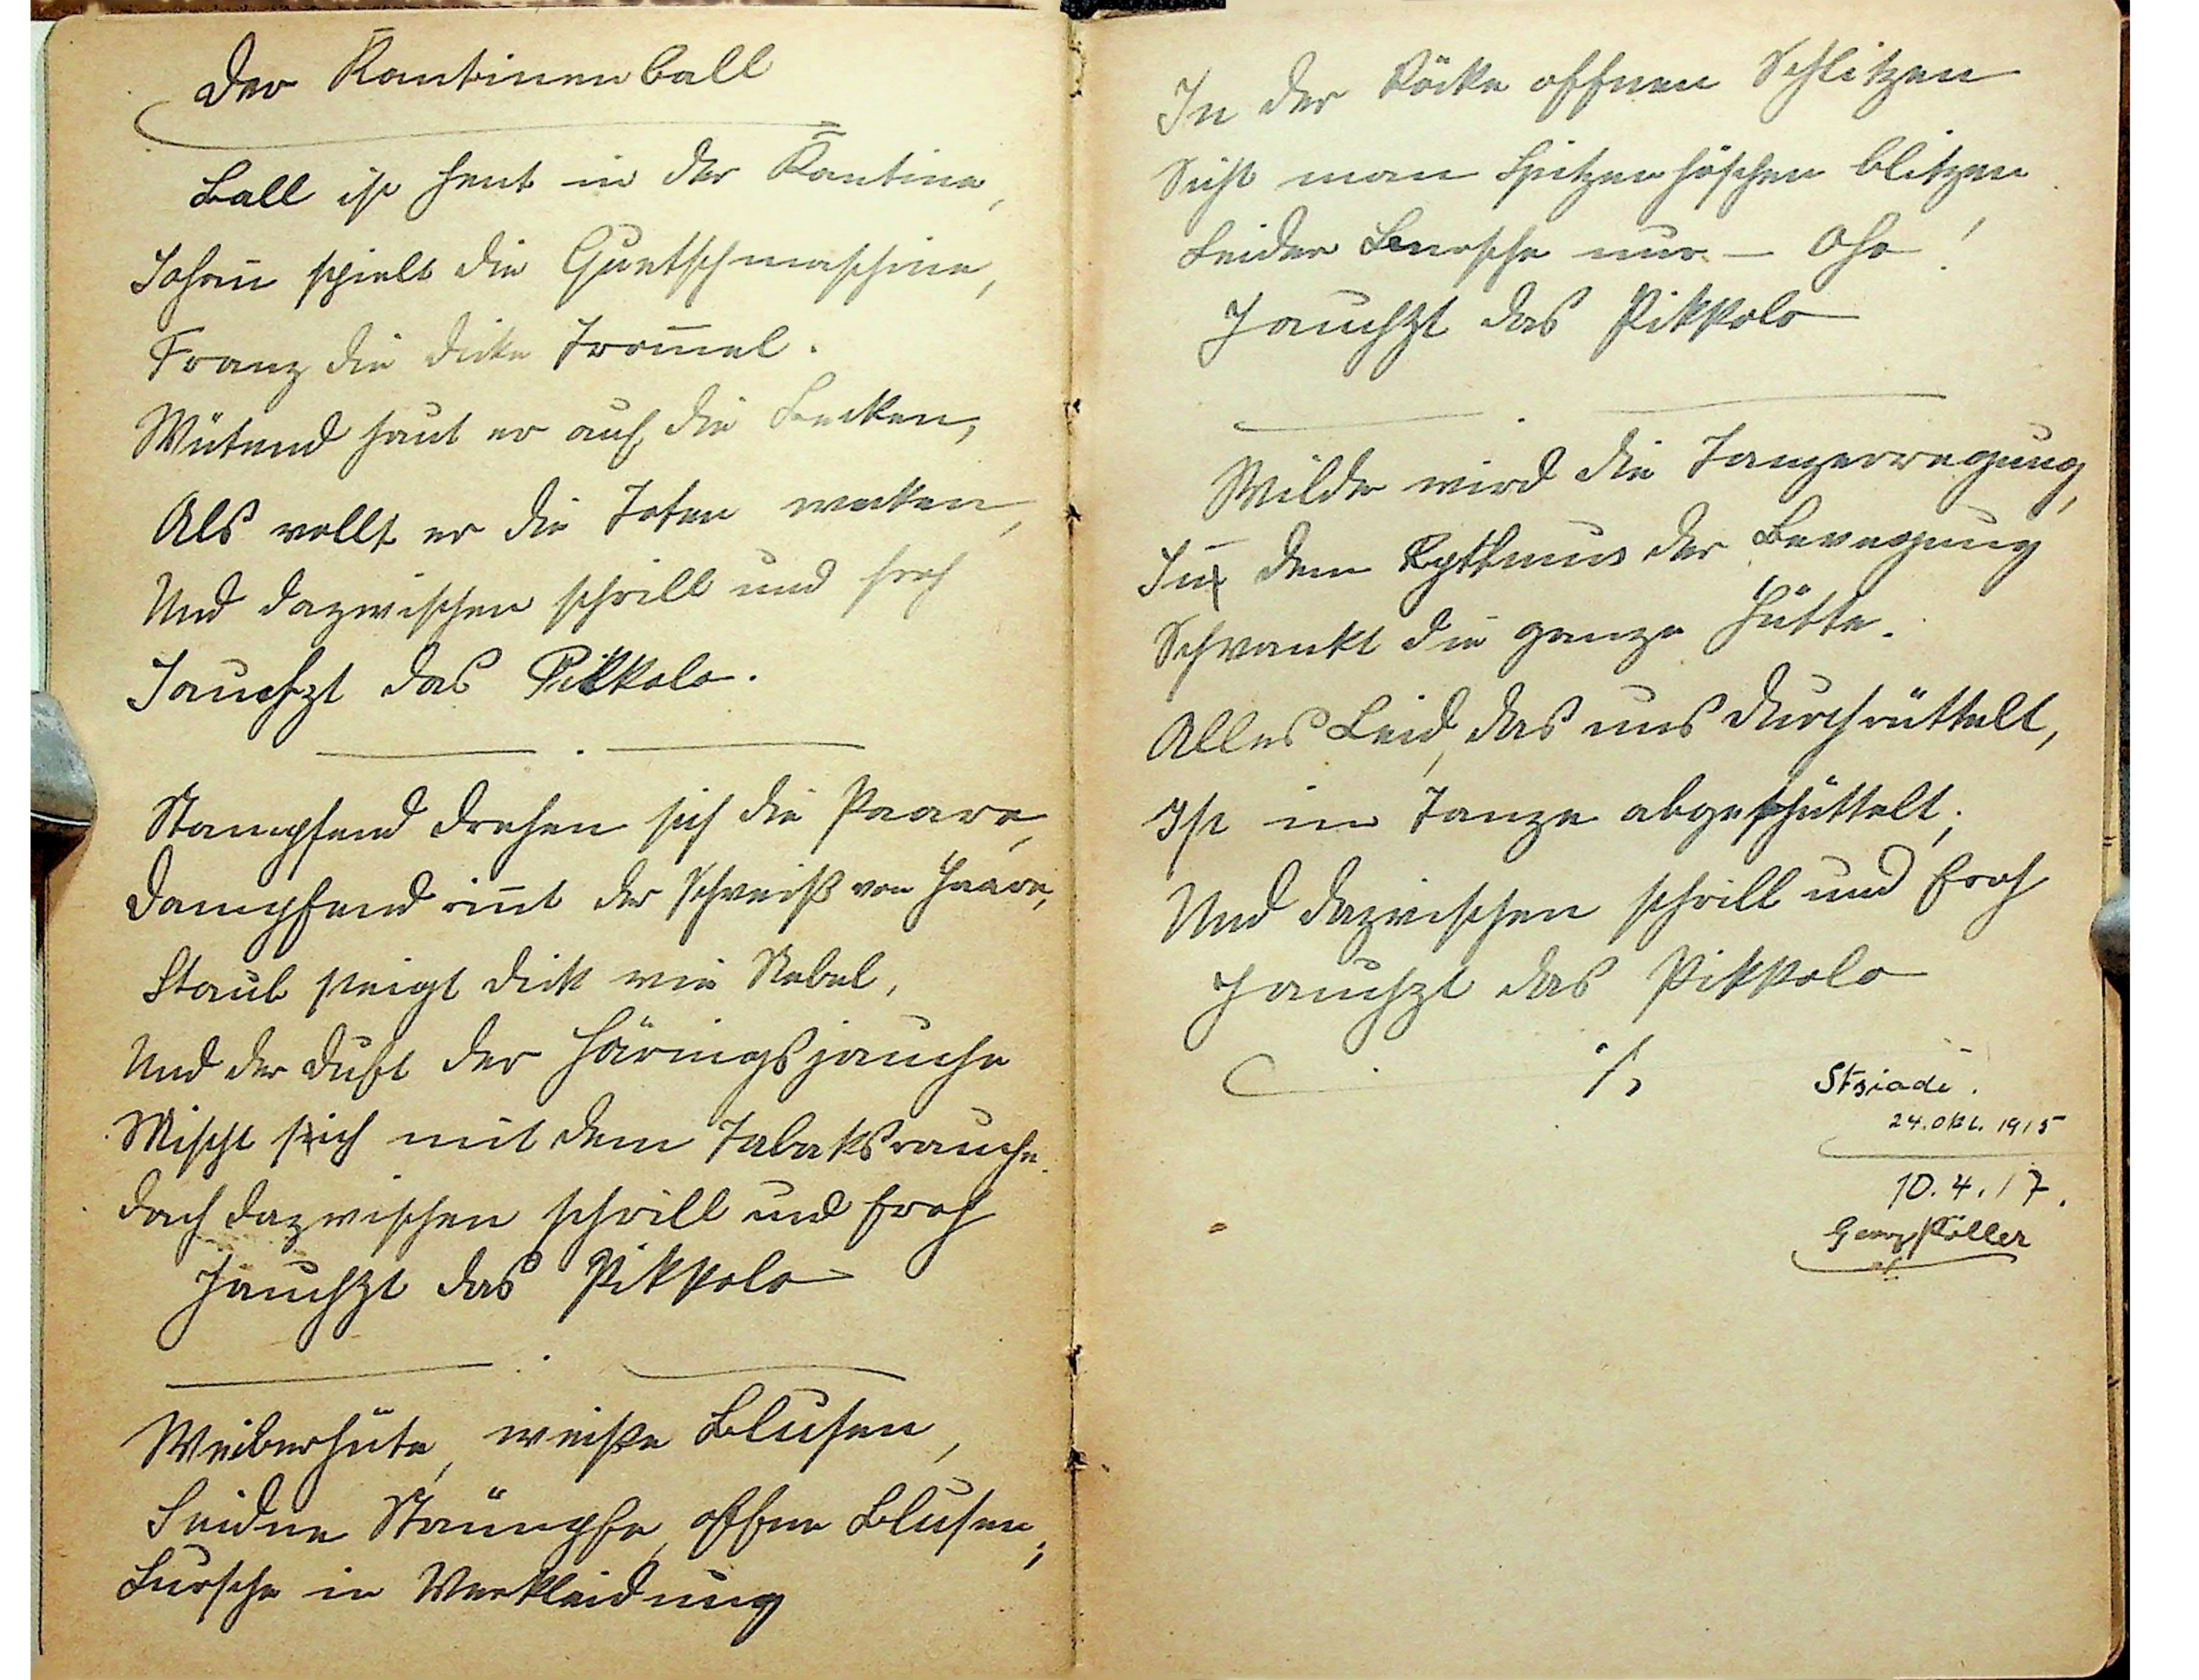 Der Kantinenball
Ball ist heut in der Kantine,
Johañ spielt die Quetschmaschine,
Franz die dicke Trom̄el.
Wütend haut er auf die Becken,
Als wollt er die Toten wecken,
Und dazwischen schrill und froh
Jauchzt das Pikkolo.
Stampfend drehen sich die Paare,
Dampfend rin̄t der Schweiß von Haare,
Staub steigt dick wie Nebel,
Und der Duft der Häringsjauche
Mischt sich mit dem Tabaksrauche.
Doch dazwischen schrill und froh
Jauchzt das Pikkolo
Weiberhüte, weiße Blusen,
Seidne Strümpfe, offne Blusen;
Bursche in Verkleidung
In der Röcke offnen Schlitzen
Sieht man Spitzenhöschen blitzen.
Leider Bursche nur – Oho!
Jauchzt das Pikkolo
Wilder wird die Tanzerregung,
In dem Rythmus der Bewegung
Schwankt die ganze Hütte.
Alles Leid, das uns durchrüttelt,
Ist im Tanze abgeschüttelt;
Und dazwischen schrill und froh
Jauchzt das Pikkolo
./.
24. Okt. 1915
10.4.17.
Georg